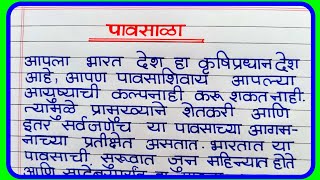 पावसाळा
आपला भारत देश हा कृषिप्रधान देश
आहे, आपण पावसाशिवाय आपल्या
आयुष्याची कल्पनाही करू शकत नाही.
त्यामुळे प्रामुख्याने शेतकरी आणि
इतर सर्वजणच या पावसाच्या आगम-
नाच्या प्रतीक्षेत असतात. भारतात या
पावसाची सुरुवात जुन महिन्यात होते
आणि सप्टेंबरपर्यंत